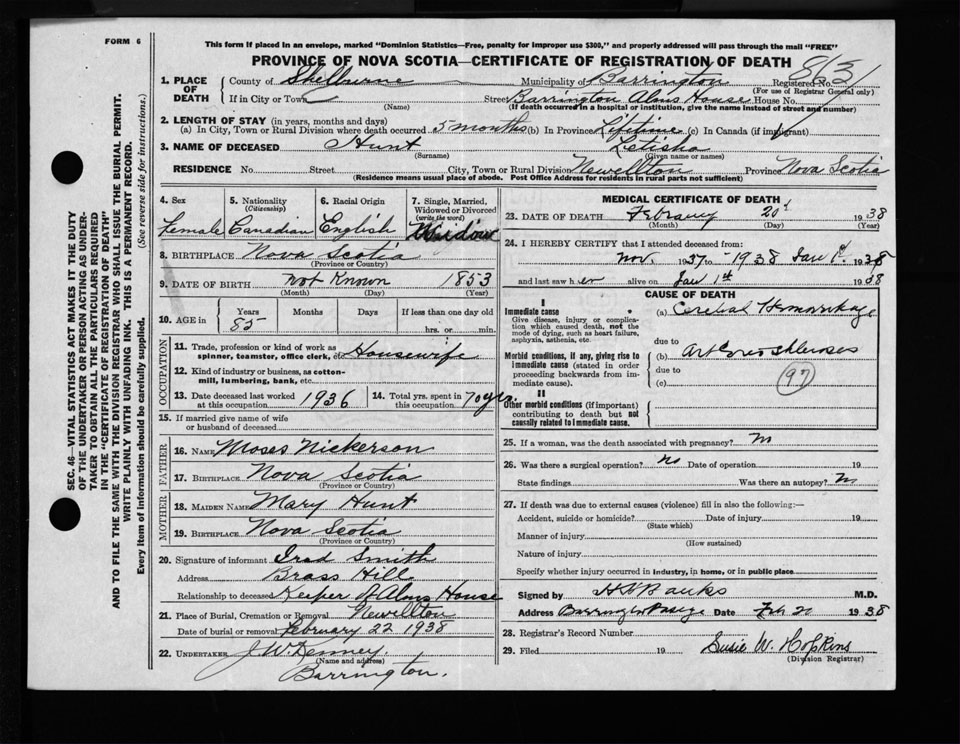 FORM 6
This form if placed in an envelope, marked "Dominion Statistics—Free, penalty for improper use $300," and properly addressed will pass through the mail "FREE"
PROVINCE OF NOVA SCOTIA—CERTIFICATE OF REGISTRATION OF DEATH
1. PLACE OF DEATH County of Shelburne Municipality of Barrington Registered No.
(For use of Registrar General only)
If in City or Town Street Barrington Alms House House No.
(Name) (If death occurred in a hospital or institution, give the name instead of street and number)
2. LENGTH OF STAY (in years, months and days)
(a) In City, Town or Rural Division where death occurred 5 months (b) In Province Lifetime (c) In Canada (if immigrant)
3. NAME OF DECEASED Hunt Letisha
(Surname) (Given name or names)
RESIDENCE No. Street City, Town or Rural Division Newellton Province Nova Scotia
(Residence means usual place of abode. Post Office Address for residents in rural parts not sufficient)
4. Sex Female
5. Nationality (Citizenship) Canadian
6. Racial Origin English
7. Single, Married, Widowed or Divorced (write the word) Widow
8. BIRTHPLACE Nova Scotia
(Province or Country)
9. DATE OF BIRTH Not Known 1853
(Month) (Day) (Year)
10. AGE in Years Months Days If less than one day old
85 hrs. or min.
OCCUPATION
11. Trade, profession or kind of work as spinner, teamster, office clerk, etc. Housewife
12. Kind of industry or business, as cotton-mill, lumbering, bank, etc.
13. Date deceased last worked at this occupation 1936
14. Total yrs. spent in this occupation 70 yrs.
15. If married give name of wife or husband of deceased
FATHER
16. NAME Moses Nickerson
17. BIRTHPLACE Nova Scotia
(Province or Country)
MOTHER
18. MAIDEN NAME Mary Hunt
19. BIRTHPLACE Nova Scotia
(Province or Country)
20. Signature of informant Irad Smith
Address Brass Hill
Relationship to deceased Keeper of Alms House
21. Place of Burial, Cremation or Removal Newellton
Date of burial or removal February 22 1938
22. UNDERTAKER J. W. Denney
(Name and address)
Barrington.
MEDICAL CERTIFICATE OF DEATH
23. DATE OF DEATH February 20 1938
(Month) (Day) (Year)
24. I HEREBY CERTIFY that I attended deceased from:
Nov. 1937 to 1938 Jan 1st 1938
and last saw her alive on Jan 1st 1938
CAUSE OF DEATH
I
Immediate cause
Give disease, injury or complication which caused death, not the mode of dying, such as heart failure, asphyxia, asthenia, etc.
(a) Cerebral Hemorrhage
due to
Morbid conditions, if any, giving rise to immediate cause (stated in order proceeding backwards from immediate cause).
(b) Arteriosclerosis
due to
(c) (97)
II
Other morbid conditions (if important) contributing to death but not causally related to immediate cause.
25. If a woman, was the death associated with pregnancy? No
26. Was there a surgical operation? No Date of operation 19
State findings Was there an autopsy? No
27. If death was due to external causes (violence) fill in also the following:—
Accident, suicide or homicide? Date of injury 19
(State which)
Manner of injury
(How sustained)
Nature of injury
Specify whether injury occurred in industry, in home, or in public place
Signed by Banks M.D.
Address Barrington Passage Date Feb 21 1938
28. Registrar's Record Number
29. Filed 19 Susie W. Hopkins
(Division Registrar)
SEC. 46—VITAL STATISTICS ACT MAKES IT THE DUTY
OF THE UNDERTAKER OR PERSON ACTING AS UNDER-
TAKER TO OBTAIN ALL THE PARTICULARS REQUIRED
IN THE "CERTIFICATE OF REGISTRATION OF DEATH"
AND TO FILE THE SAME WITH THE DIVISION REGISTRAR WHO SHALL ISSUE THE BURIAL PERMIT.
WRITE PLAINLY WITH UNFADING INK. THIS IS A PERMANENT RECORD.
Every item of information should be carefully supplied. (See reverse side for instructions.)